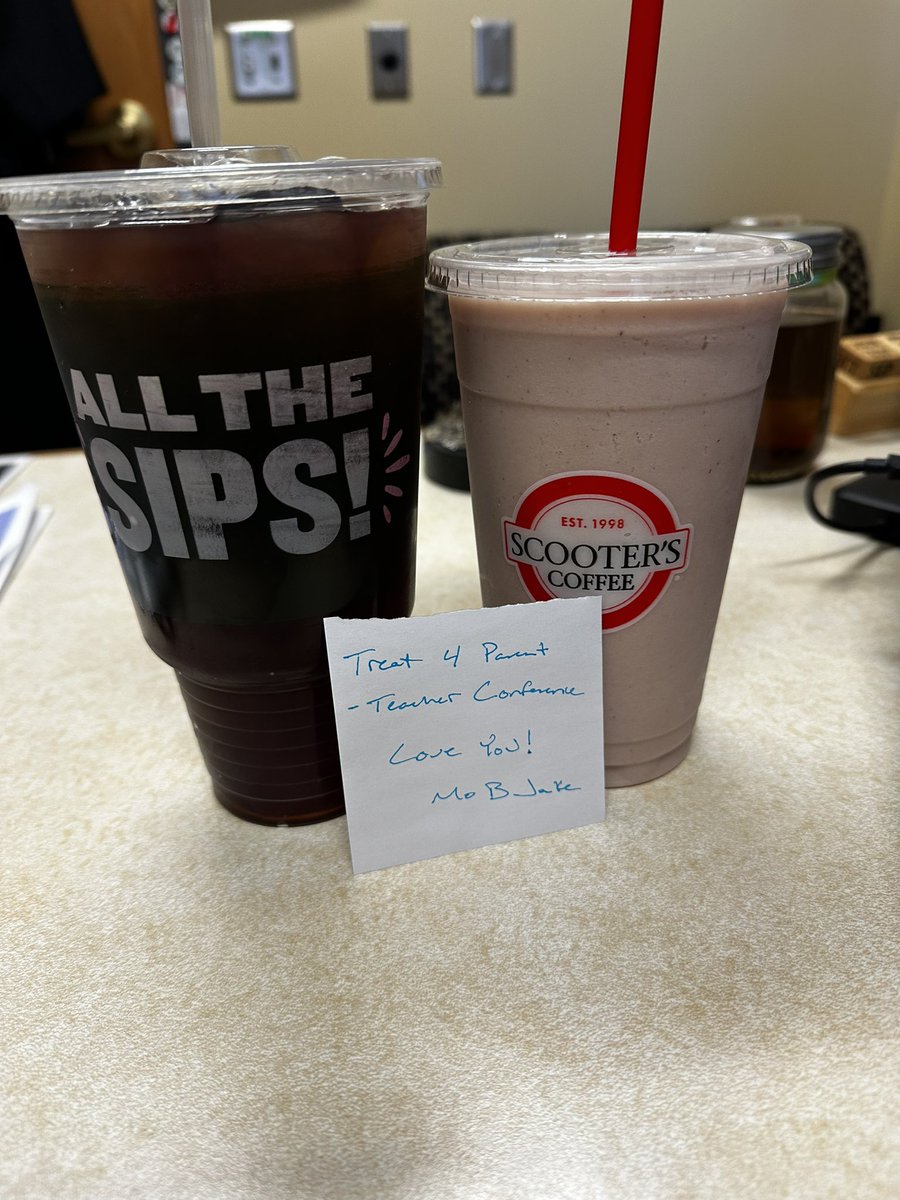 ALL THE
SIPS!
EST. 1998
SCOOTER'S
COFFEE
Treat 4 Parent
- Teacher Conference
Love You!
Mo B Jake